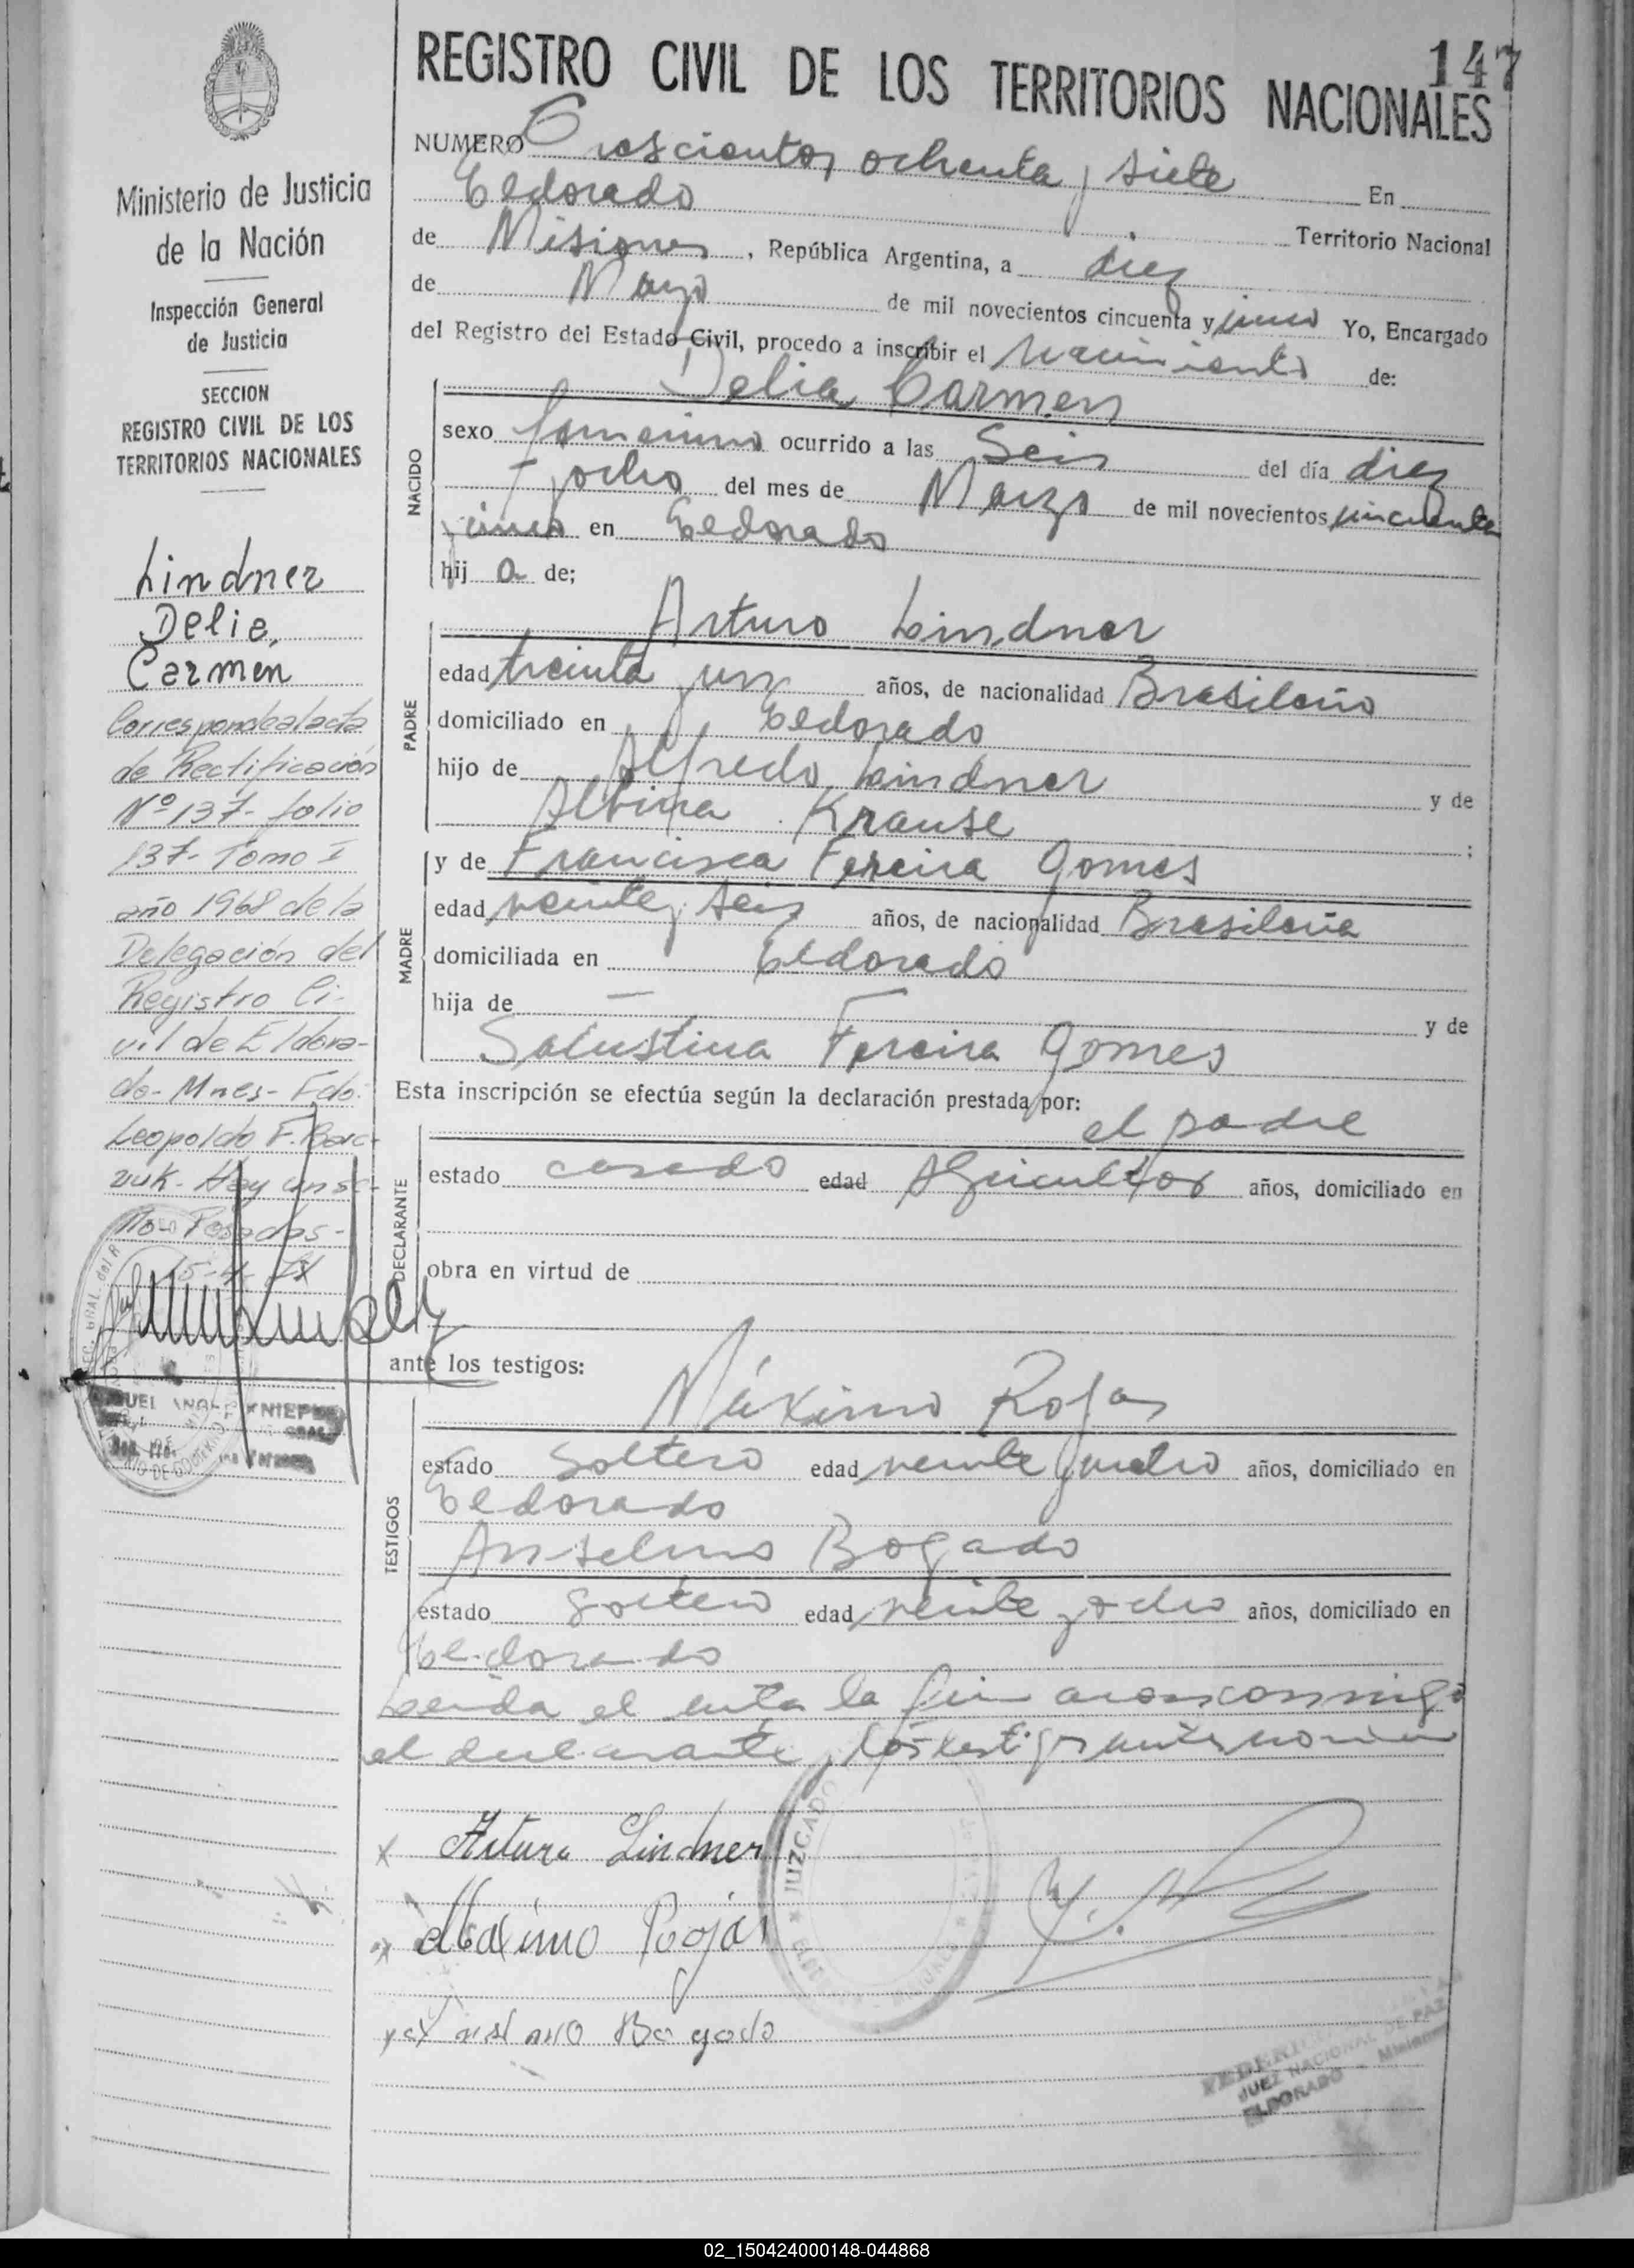 147
REGISTRO CIVIL DE LOS TERRITORIOS NACIONALES
NUMERO Trescientos ochenta y siete En
Eldorado Territorio Nacional
de Misiones, República Argentina, a diez
de Mayo de mil novecientos cincuenta y cinco Yo, Encargado
del Registro del Estado Civil, procedo a inscribir el Nacimiento de:
Delia Carmen
NACIDO
sexo femenino ocurrido a las Seis del día diez
y ocho del mes de Marzo de mil novecientos cincuenta
y cinco en Eldorado
hij a de;
Arturo Lindner
PADRE
edad treinta y un años, de nacionalidad Brasileño
domiciliado en Eldorado
hijo de Alfredo Lindner y de
Albina Krause ;
y de Francisca Fereira Gomes
MADRE
edad veinte y seis años, de nacionalidad Brasileña
domiciliada en Eldorado
hija de — y de
Salustina Fereira Gomes
Esta inscripción se efectúa según la declaración prestada por:
el padre
DECLARANTE
estado casado edad Agricultor años, domiciliado en
obra en virtud de
ante los testigos:
Máximo Rojas
TESTIGOS
estado Soltero edad veinte y cuatro años, domiciliado en
Eldorado
Anselmo Bogado
estado Soltero edad veinte y ocho años, domiciliado en
Eldorado
Leida el acta la firman conmigo
el declarante y los testigos
x Arturo Lindner
x Maximo Roojas
x Anselmo Bogado
JUZGADO
JUEZ NACIONAL DE PAZ
ELDORADO - Misiones
Ministerio de Justicia
de la Nación
Inspección General
de Justicia
SECCION
REGISTRO CIVIL DE LOS
TERRITORIOS NACIONALES
Lindner
Delia,
Carmen
Corresponde al acta
de Rectificación
Nº 137- folio
137- Tomo I
año 1968 de la
Delegación del
Registro Ci-
vil de Eldora-
do- Mnes- Fdo.
Leopoldo F.
Hay un se-
llo- Posadas-
02_150424000148-044868